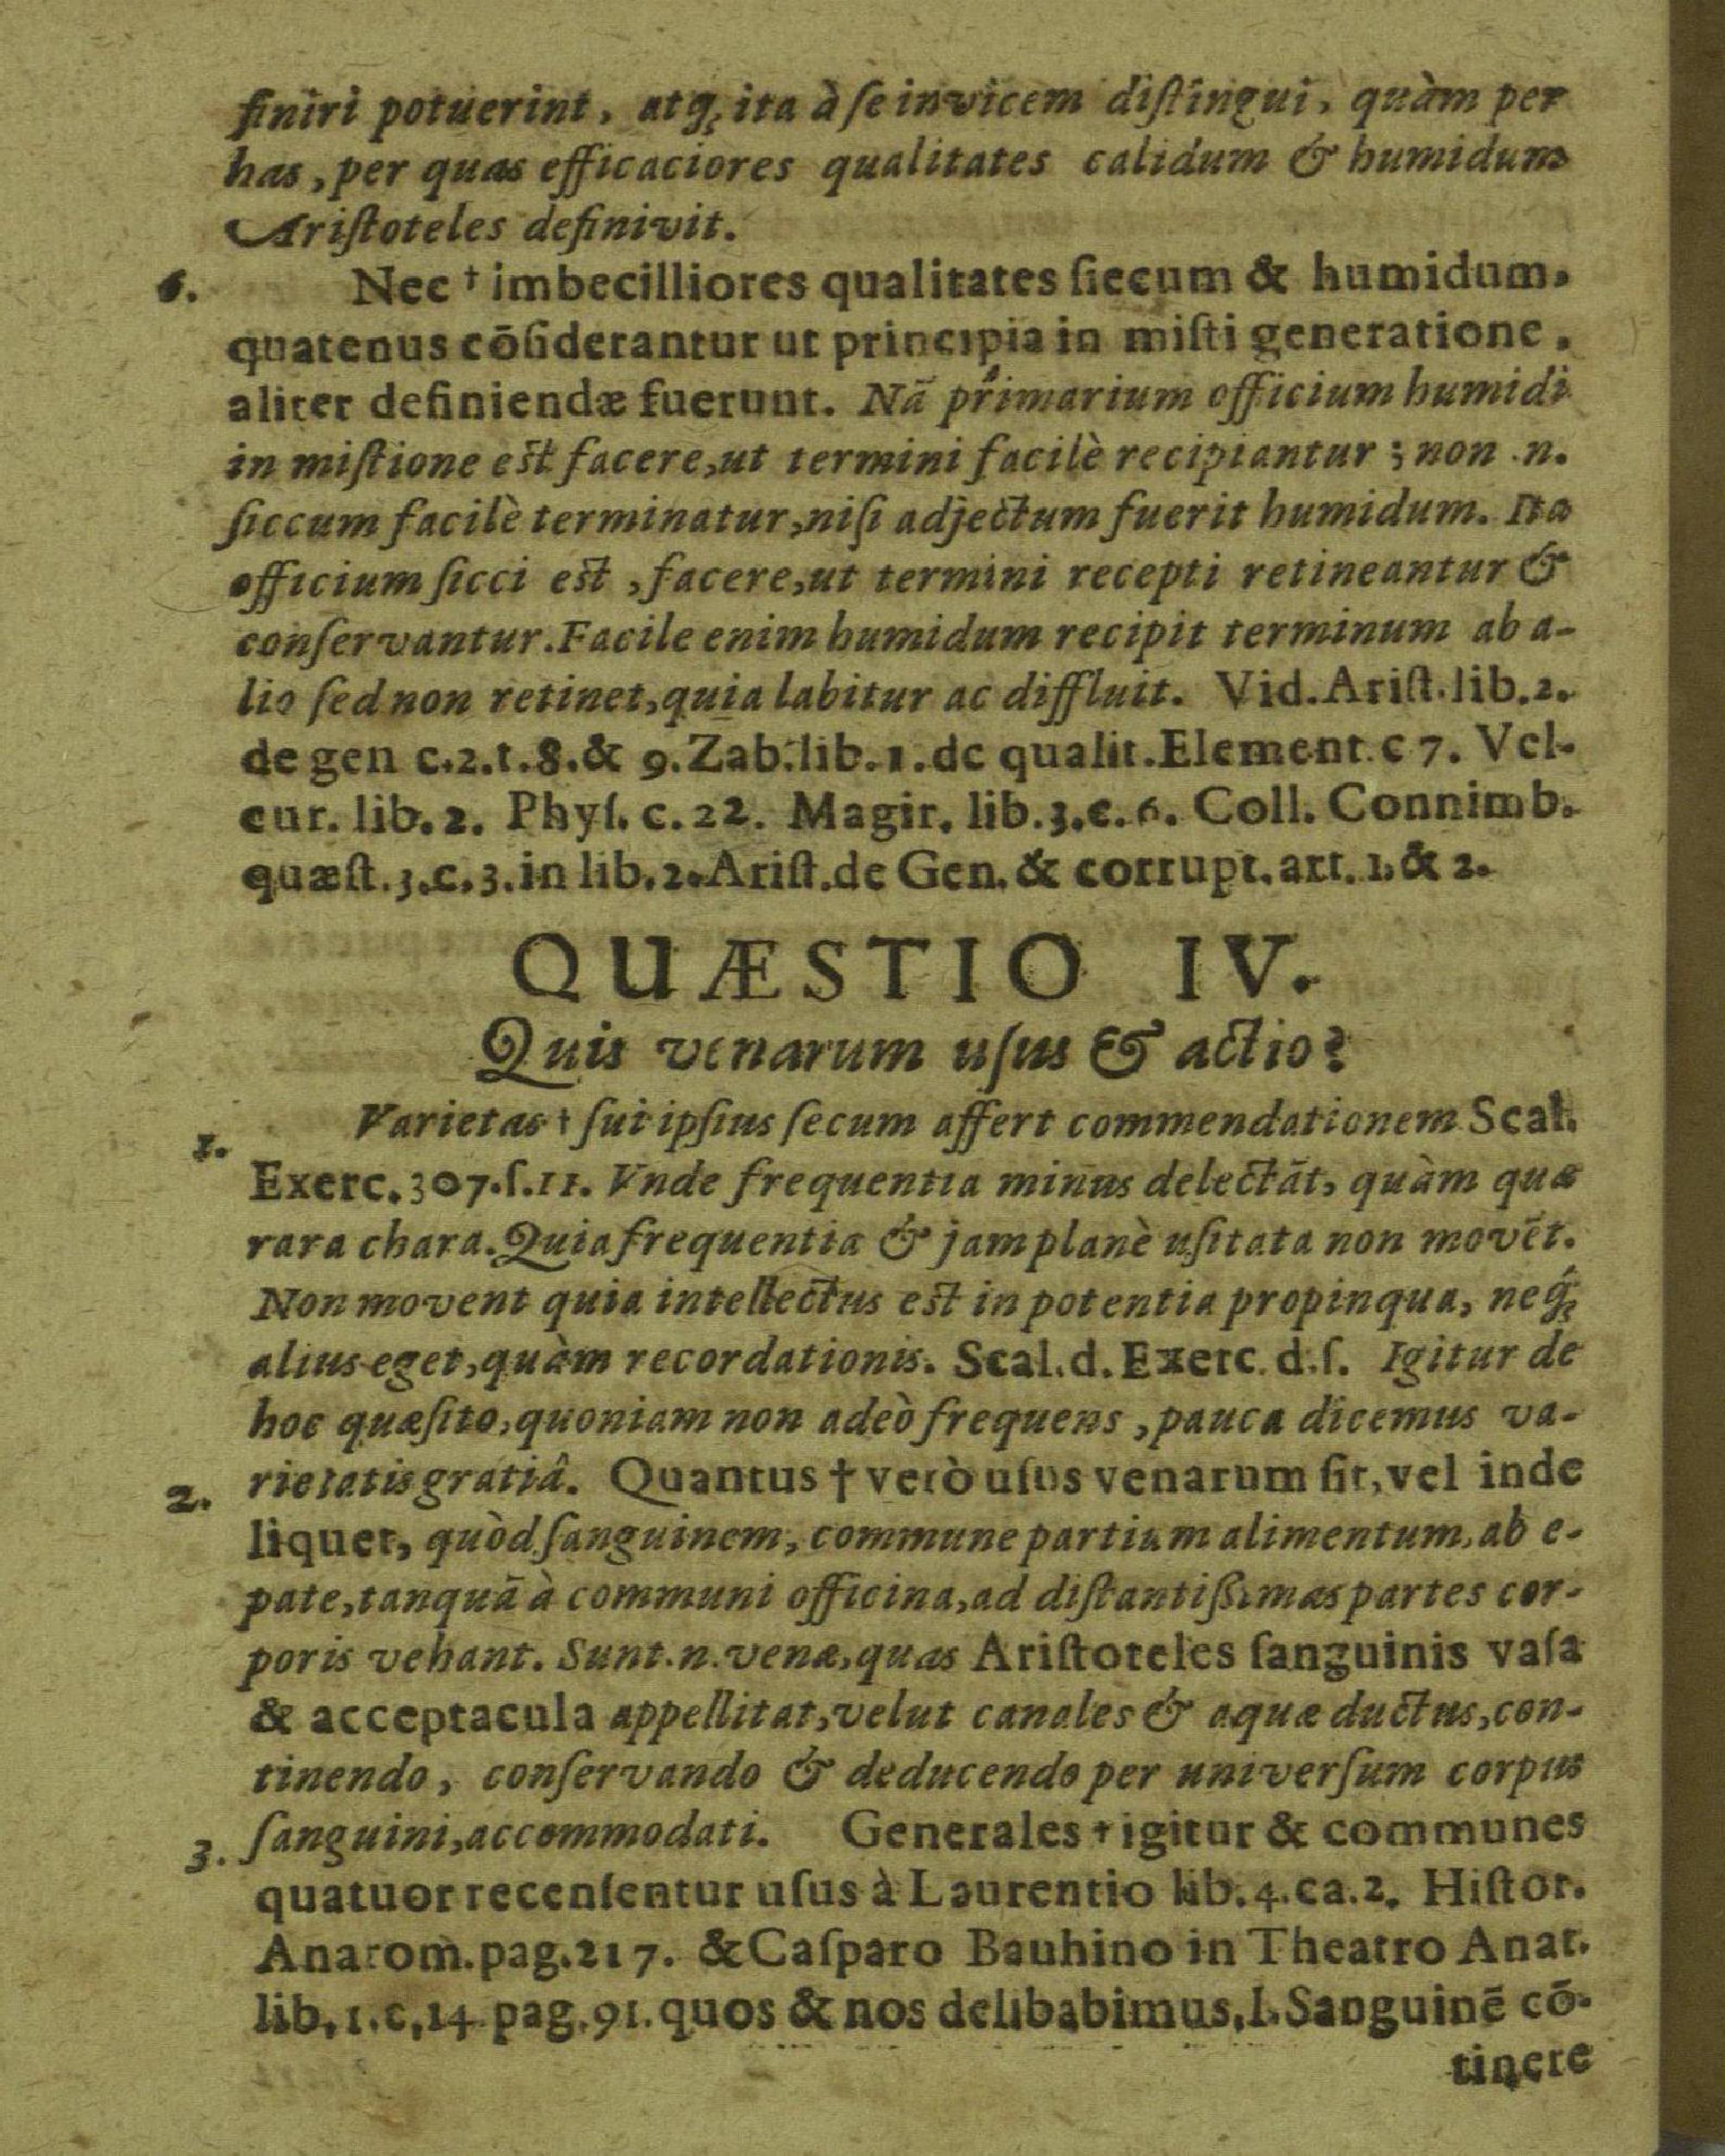 finiri potuerint, atq; ita à ſe invicem diſtingui, quàm per
has, per quas efficaciores qualitates calidum & humidum
Ariſtoteles definivit.
6. Nec † imbecilliores qualitates ſiccum & humidum,
quatenus cōſiderantur ut principia in miſti generatione,
aliter definiendæ fuerunt. Nā primarium officium humidi
in miſtione eſt facere, ut termini facilè recipiantur; non .n.
ſiccum facilè terminatur, niſi adjectum fuerit humidum. Ita
officium ſicci eſt, facere, ut termini recepti retineantur &
conſervantur. Facile enim humidum recipit terminum ab a-
lio ſed non retinet, quia labitur ac diffluit. Vid. Ariſt. lib. 2.
de gen c. 2. t. 8. & 9. Zab. lib. 1. de qualit. Element. c 7. Vel-
cur. lib. 2. Phyſ. c. 22. Magir. lib. 3. c. 6. Coll. Connimb.
quæſt. 3. c. 3. in lib. 2. Ariſt. de Gen. & corrupt. art. 1. & 2.
QUÆSTIO IV.
Quis venarum uſus & actio?
1. Varietas † ſui ipſius ſecum affert commendationem Scal.
Exerc. 307. ſ. 11. Vnde frequentia minus delectāt, quàm quæ
rara chara. Quia frequentia & jam planè uſitata non movēt.
Non movent quia intellectus eſt in potentia propinqua, neq;
alius eget, quàm recordationis. Scal. d. Exerc. d. ſ. Igitur de
hoc quæſito, quoniam non adeò frequens, pauca dicemus va-
2. rietatis gratiâ. Quantus † verò uſus venarum ſit, vel inde
liquet, quòd ſanguinem, commune partium alimentum, ab e-
pate, tanquā à communi officina, ad diſtantißimas partes cor-
poris vehant. Sunt .n. venæ, quas Ariſtoteles ſanguinis vaſa
& acceptacula appellitat, velut canales & aquæ ductus, con-
tinendo, conſervando & deducendo per univerſum corpus
3. ſanguini, accommodati. Generales † igitur & communes
quatuor recenſentur uſus à Laurentio lib. 4. ca. 2. Hiſtor.
Anatom. pag. 217. & Caſparo Bauhino in Theatro Anat.
lib. 1. c. 14. pag. 91. quos & nos delibabimus, I. Sanguinē cō-
tinere